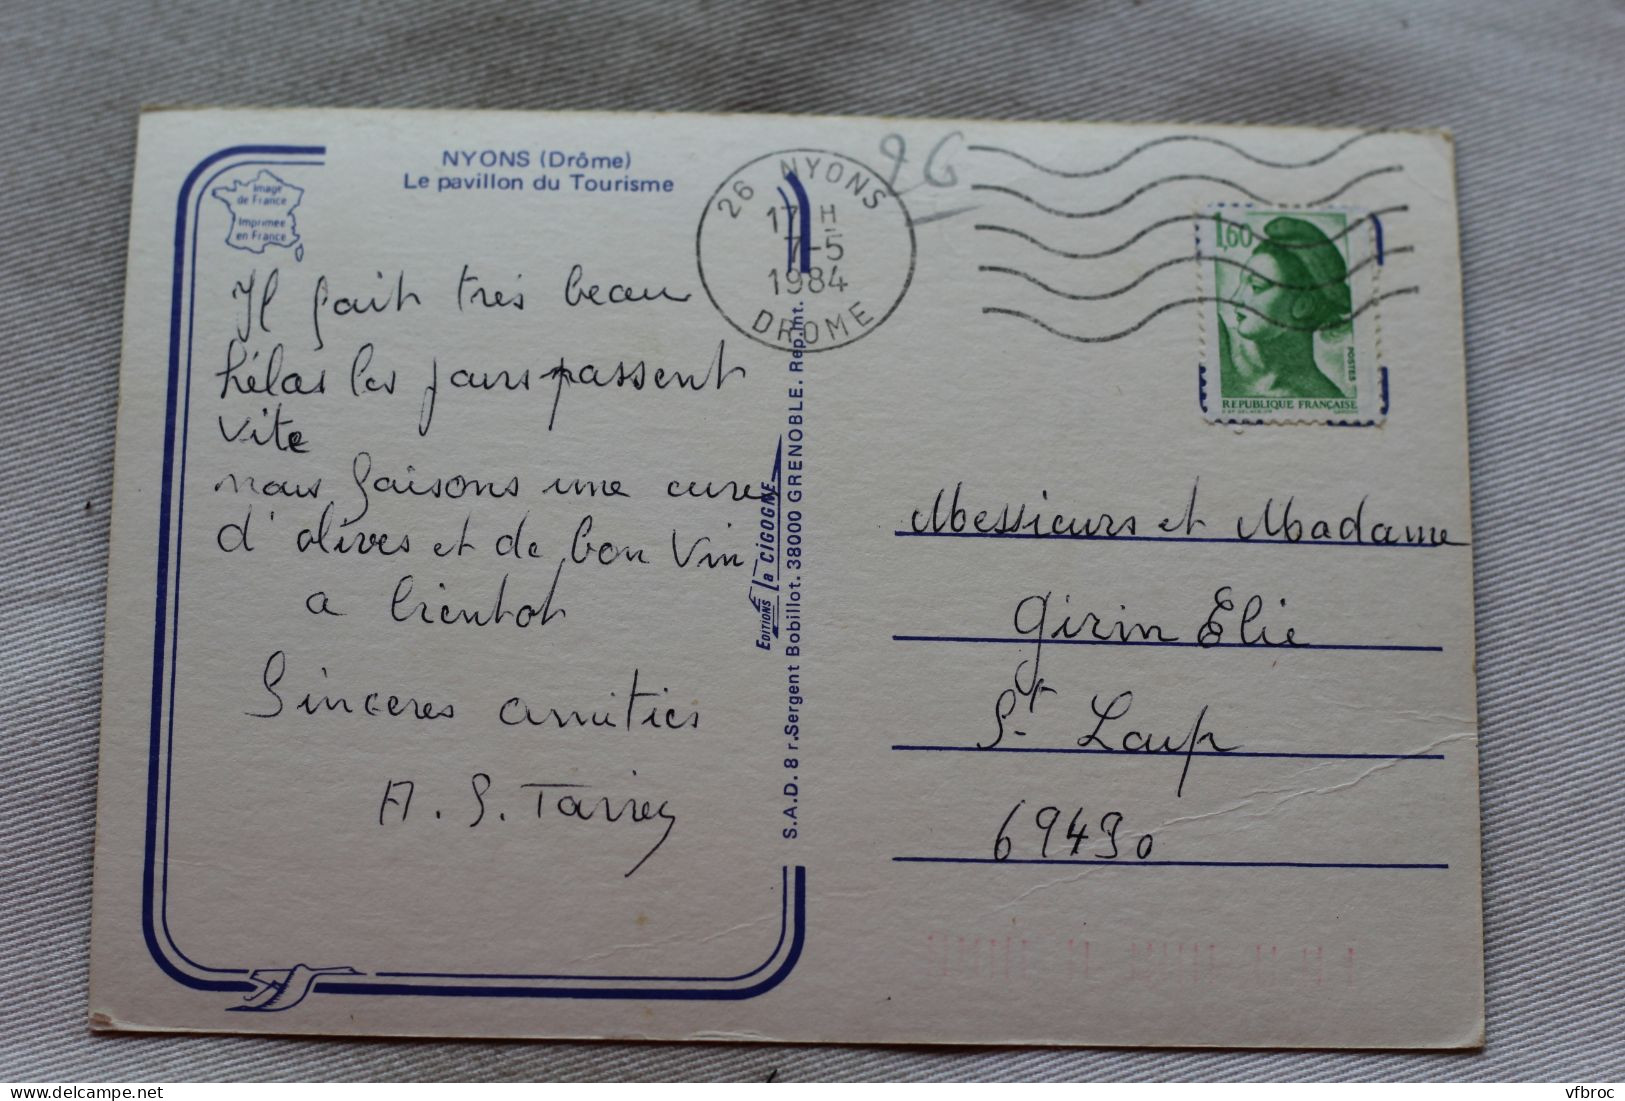 NYONS (Drôme)
Le pavillon du Tourisme
Image
de France
Imprimée
en France
Il fait très beau
hélas les jours passent
vite
nous faisons une cure
d'olives et de bon vin
a bientot
Sinceres amitiés
A. S. Tarrey
EDITIONS La CIGOGNE
S.A.D. 8 r.Sergent Bobillot. 38000 GRENOBLE. Rep.Int.
26 NYONS
17 H
7-5
1984
DROME
26
1,60
POSTES
REPUBLIQUE FRANÇAISE
Messieurs et Madame
Girin Elie
St Loup
69490
vfbroc